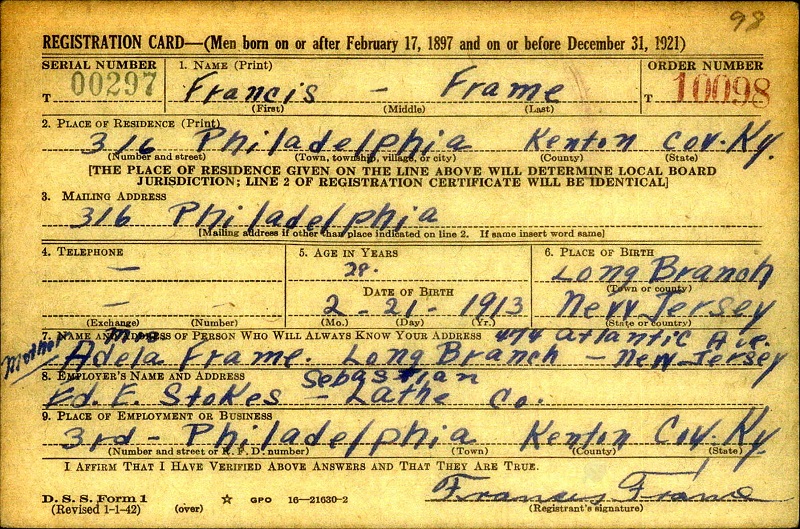 98
REGISTRATION CARD—(Men born on or after February 17, 1897 and on or before December 31, 1921)
SERIAL NUMBER 1. NAME (Print) ORDER NUMBER
T 00297 Francis - Frame T 10098
(First) (Middle) (Last)
2. PLACE OF RESIDENCE (Print)
316 Philadelphia Kenton Cov. Ky.
(Number and street) (Town, township, village, or city) (County) (State)
[THE PLACE OF RESIDENCE GIVEN ON THE LINE ABOVE WILL DETERMINE LOCAL BOARD
JURISDICTION; LINE 2 OF REGISTRATION CERTIFICATE WILL BE IDENTICAL]
3. MAILING ADDRESS
316 Philadelphia
[Mailing address if other than place indicated on line 2. If same insert word same]
4. TELEPHONE 5. AGE IN YEARS 6. PLACE OF BIRTH
— 28. Long Branch
(Town or county)
DATE OF BIRTH
— 2 - 21 - 1913 New Jersey
(Exchange) (Number) (Mo.) (Day) (Yr.) (State or country)
7. NAME AND ADDRESS OF PERSON WHO WILL ALWAYS KNOW YOUR ADDRESS 474 Atlantic Ave.
Mother Mrs Adela Frame. Long Branch - New Jersey
8. EMPLOYER'S NAME AND ADDRESS Sebastian
Ed. E. Stokes - Lathe Co.
9. PLACE OF EMPLOYMENT OR BUSINESS
3rd - Philadelphia Kenton Cov. Ky.
(Number and street or R. F. D. number) (Town) (County) (State)
I AFFIRM THAT I HAVE VERIFIED ABOVE ANSWERS AND THAT THEY ARE TRUE.
Francis Frame
D. S. S. Form 1 ☆ GPO 16—21630-2
(Revised 1-1-42) (over) (Registrant's signature)